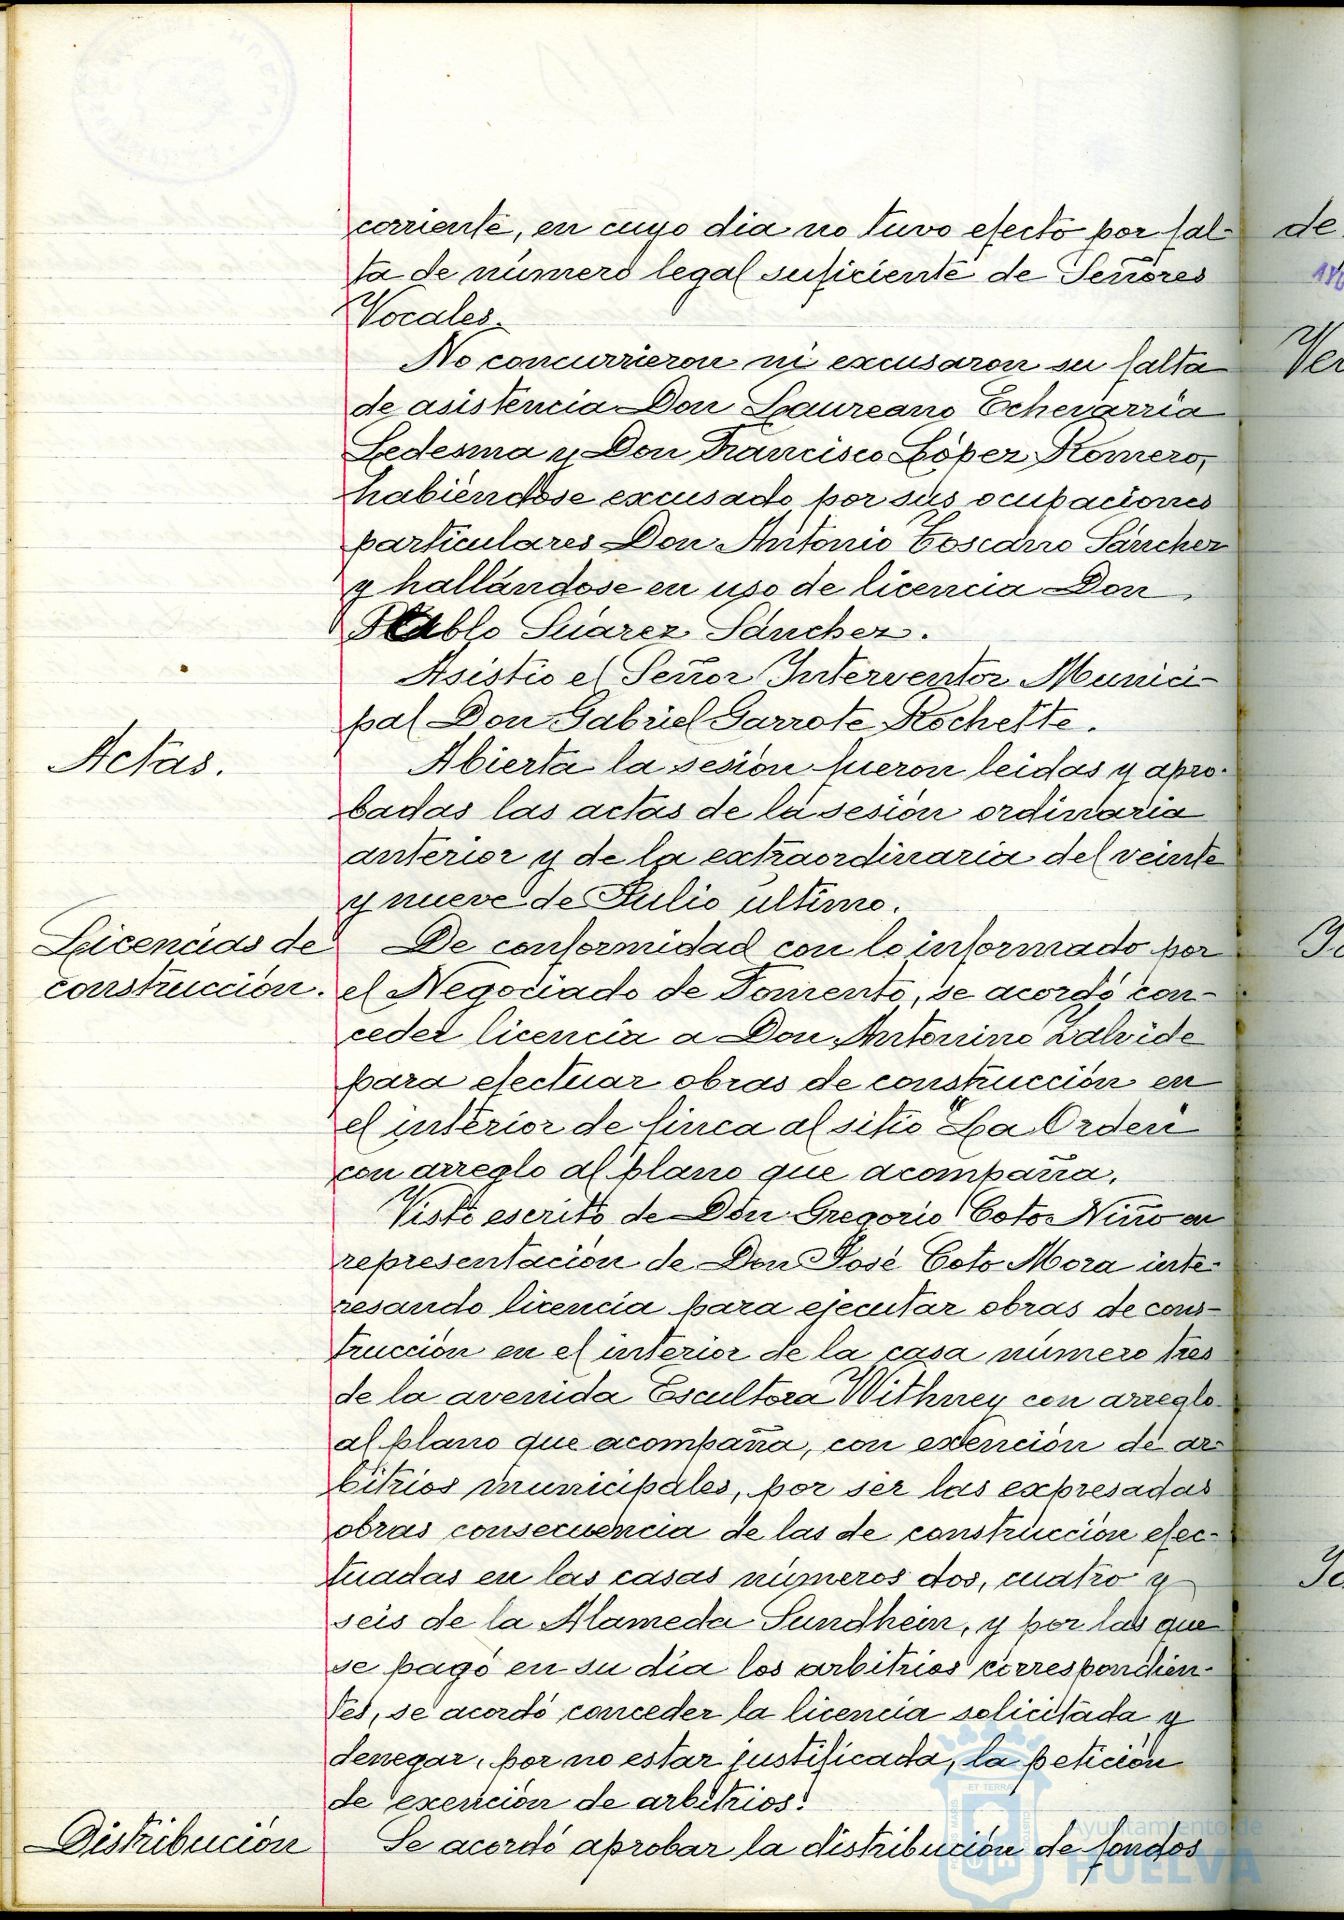 corriente, en cuyo dia no tuvo efecto por fal-
ta de número legal suficiente de Señores
Vocales.
No concurrieron ni excusaron su falta
de asistencia Don Laureano Echevarría
Ledesma y Don Francisco López Romero,
habiéndose excusado por sus ocupaciones
particulares Don Antonio Toscano Sánchez
y hallándose en uso de licencia Don
Pablo Suárez Sánchez.
Asistió el Señor Interventor Munici-
pal Don Gabriel Garrote Rochette.
Actas.
Abierta la sesión fueron leidas y apro-
badas las actas de la sesión ordinaria
anterior y de la extraordinaria del veinte
y nueve de Julio último.
Licencias de
construcción.
De conformidad con lo informado por
el Negociado de Fomento, se acordó con-
ceder licencia a Don Antonino Zalvide
para efectuar obras de construcción en
el interior de finca al sitio "La Orden"
con arreglo al plano que acompaña.
Visto escrito de Don Gregorio Coto Niño en
representación de Don José Coto Mora inte-
resando licencia para ejecutar obras de cons-
trucción en el interior de la casa número tres
de la avenida Escultora Withney con arreglo
al plano que acompaña, con exención de ar-
bitrios municipales, por ser las expresadas
obras consecuencia de las de construcción efec-
tuadas en las casas números dos, cuatro y
seis de la Alameda Sundhein, y por las que
se pagó en su día los arbitrios correspondien-
tes, se acordó conceder la licencia solicitada y
denegar, por no estar justificada, la petición
de exención de arbitrios.
Distribución
Se acordó aprobar la distribución de fondos
Ayuntamiento de
HUELVA